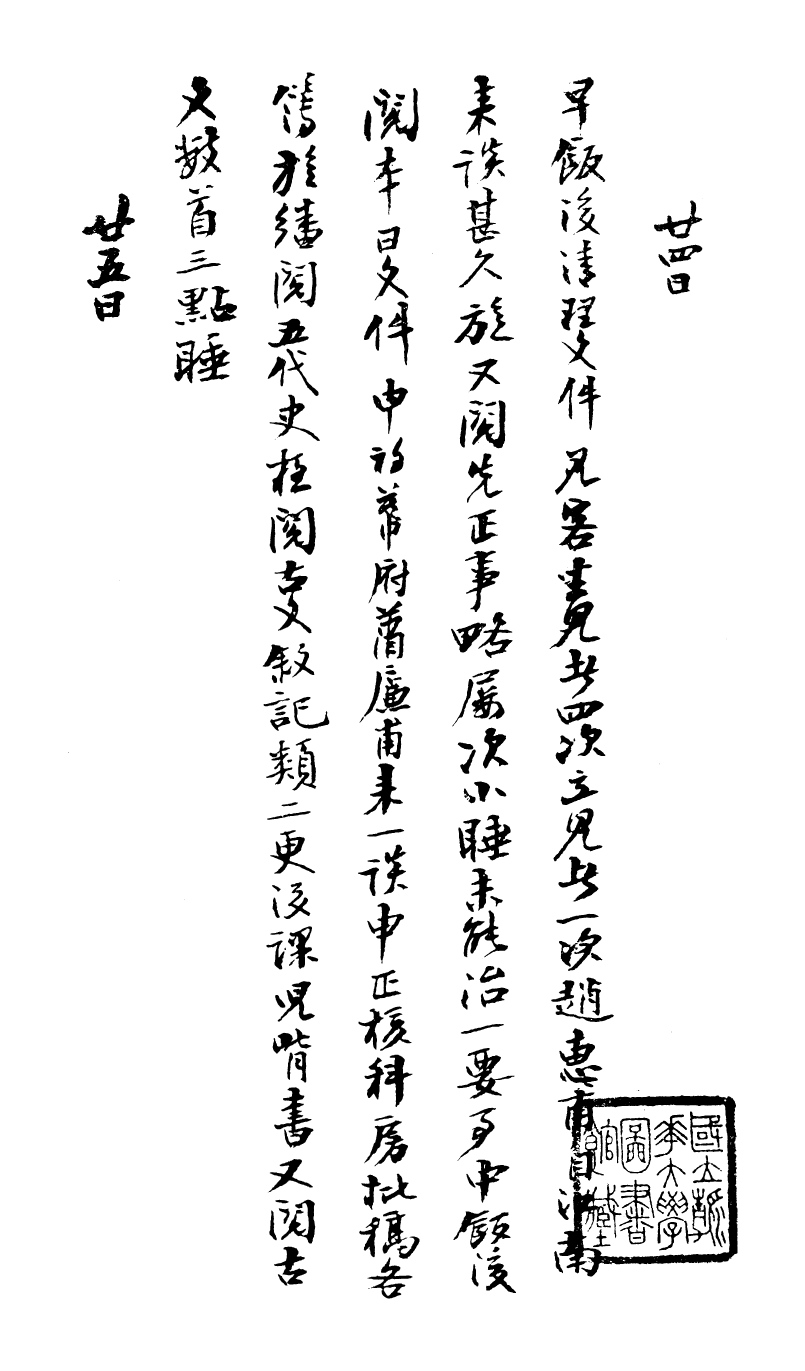 廿四日
早飯後清理文件見客坐見者四次立見者一次趙惠甫自江南
來談甚久旋又閱先正事略屢次小睡未能治一要事中飯後
閱本日文件申初幕府蕭廉甫來一談申正核科房批稿各
簿旋繙閱五代史夜閱古文敘記類二更後課兒背書又閱古
文數首三點睡
廿五日
國立清
華大學
圖書
館藏